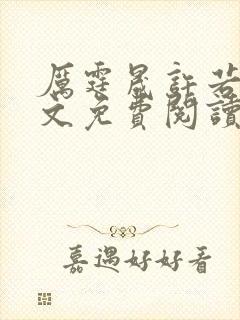 厲霆晟許若
文免費閱讀
嘉遇好好看